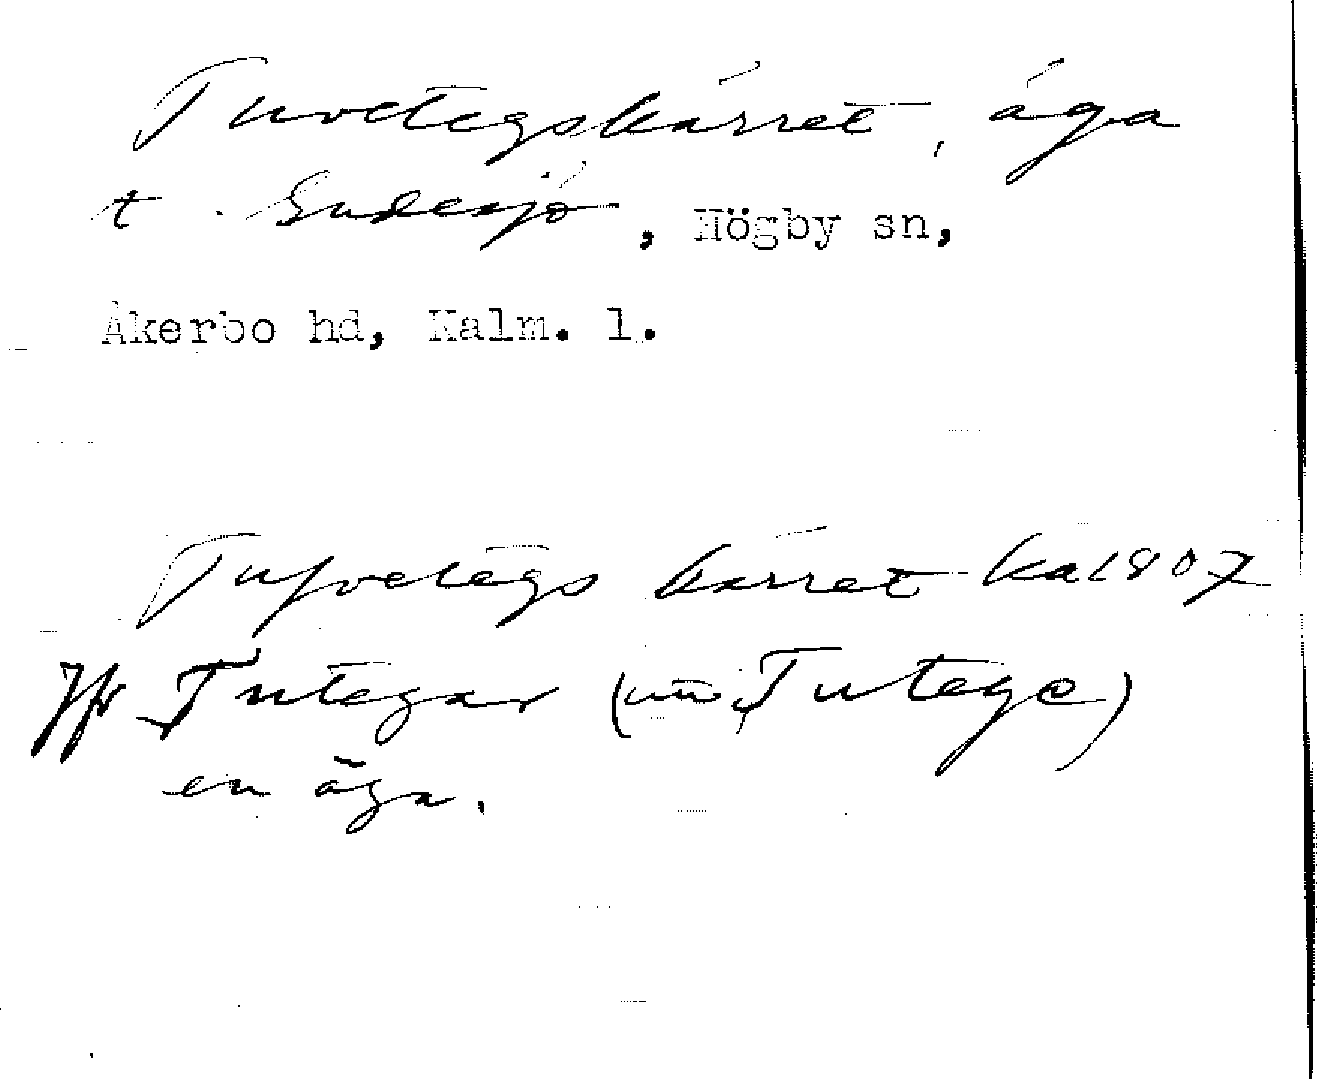 Tuvetegskärret, äga
t. Gudesjö, Högby sn,
Åkerbo hd, Kalm. l.
Tufvetegs kärret ka 1807
Jfr Tutegar (nu Tutege)
en äga.